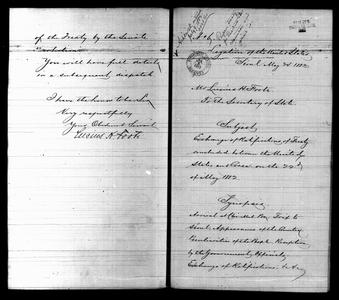 of the Treaty by the Senate
resolution.
You will have full details
in a subsequent dispatch
I have the honor to be Sir
Very respectfully
Your Obedient Servant
Lucius H. Foote
Legation of the United States
Seoul May 25 188
Mr Lucius H. Foote
To the Secretary of State.
Subject
Exchange of Ratifications of Treaty
concluded between the United
States and Corea on the 22nd
of May 1882
Synopsis
Arrival at Chemulpo. Trip to
Seoul. Appearance of the Country
of the People. Reception
by the Government Officials
Exchange of Ratifications &c